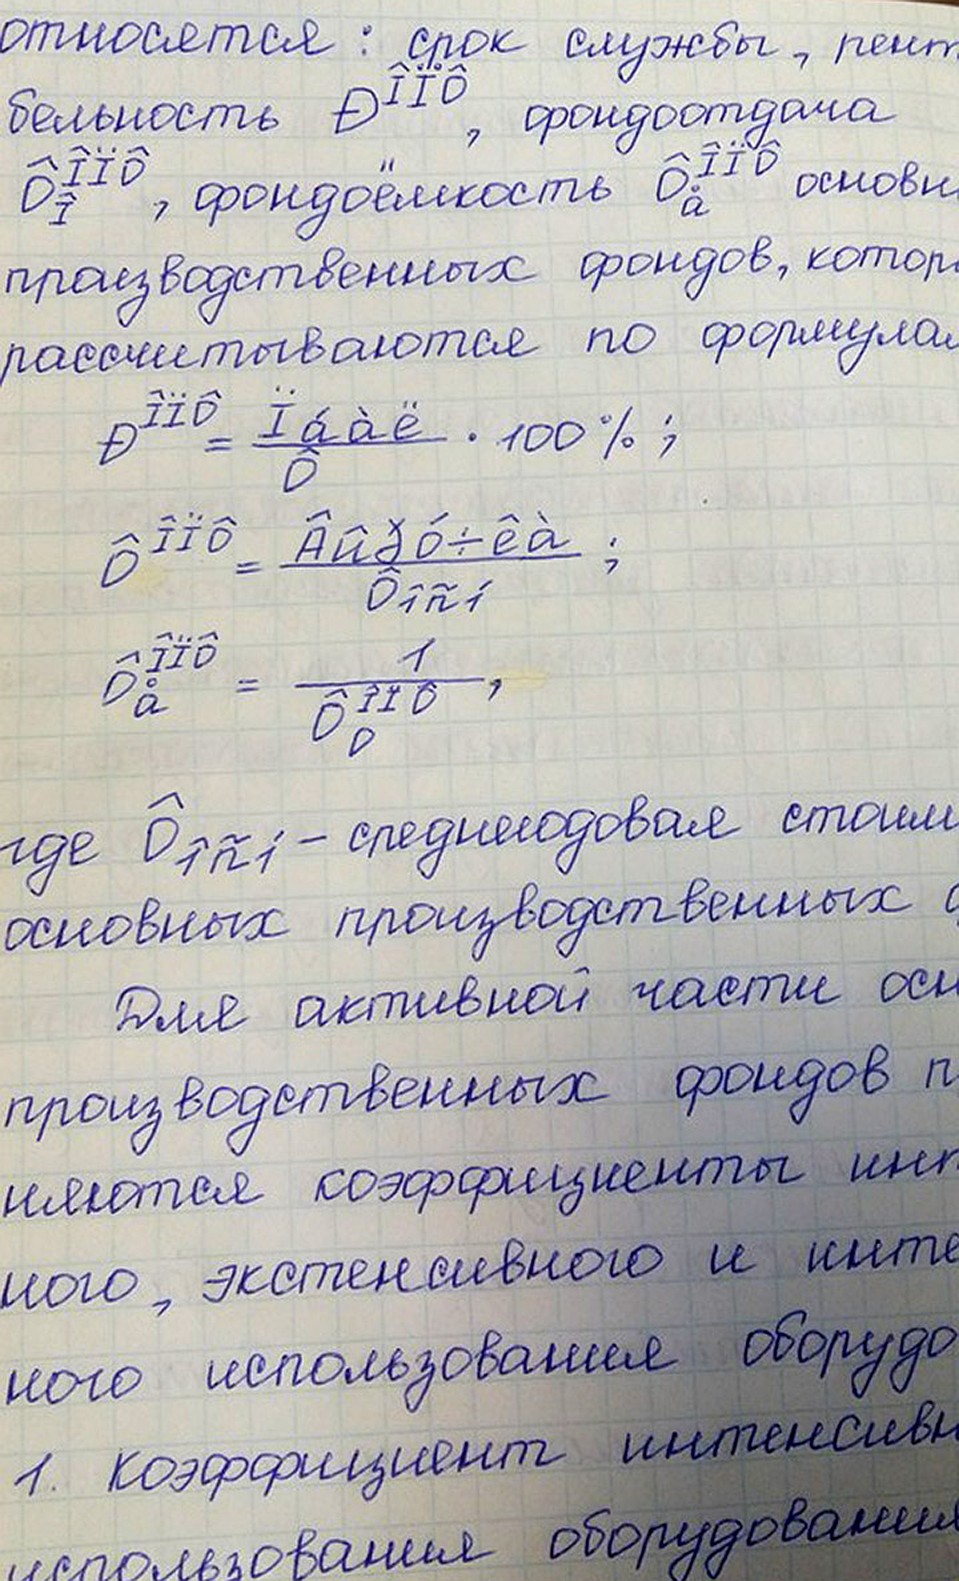 относятся: срок службы, рент
бельность Ð^ÎÏÔ, фондоотдача
Ô_Î^ÎÏÔ, фондоёмкость Ô_å^ÎÏÔ основн
производственных фондов, котор
рассчитываются по формулам
Ð^ÎÏÔ = Ïáàë / Ô · 100%;
Ô^ÎÏÔ = Âûðó÷êà / Ôîñí;
Ô_å^ÎÏÔ = 1 / Ô_О^ÎÏÔ,
где Ôîñí - среднегодовая стоим
основных производственных ф
Для активной части осн
производственных фондов п
няются коэффициенты инт
ного, экстенсивного и инте
ного использования оборудо
1. Коэффициент интенсивн
использования оборудования